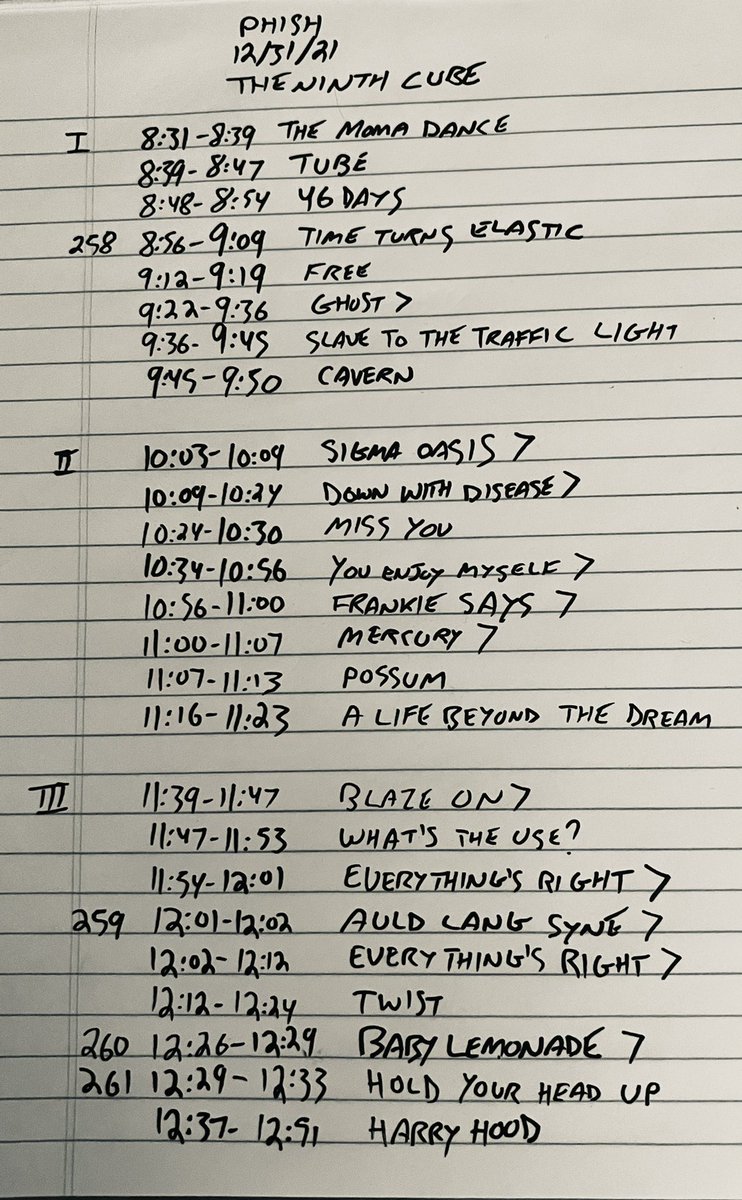 PHISH
12/31/21
THE NINTH CUBE
I 8:31-8:39 THE MOMA DANCE
8:39-8:47 TUBE
8:48-8:54 46 DAYS
258 8:56-9:09 TIME TURNS ELASTIC
9:12-9:19 FREE
9:22-9:36 GHOST >
9:36-9:45 SLAVE TO THE TRAFFIC LIGHT
9:45-9:50 CAVERN
II 10:03-10:09 SIGMA OASIS >
10:09-10:24 DOWN WITH DISEASE >
10:24-10:30 MISS YOU
10:34-10:56 YOU ENJOY MYSELF >
10:56-11:00 FRANKIE SAYS >
11:00-11:07 MERCURY >
11:07-11:13 POSSUM
11:16-11:23 A LIFE BEYOND THE DREAM
III 11:39-11:47 BLAZE ON >
11:47-11:53 WHAT'S THE USE?
11:54-12:01 EVERYTHING'S RIGHT >
259 12:01-12:02 AULD LANG SYNE >
12:02-12:12 EVERYTHING'S RIGHT >
12:12-12:24 TWIST
260 12:26-12:29 BABY LEMONADE >
261 12:29-12:33 HOLD YOUR HEAD UP
12:37-12:51 HARRY HOOD